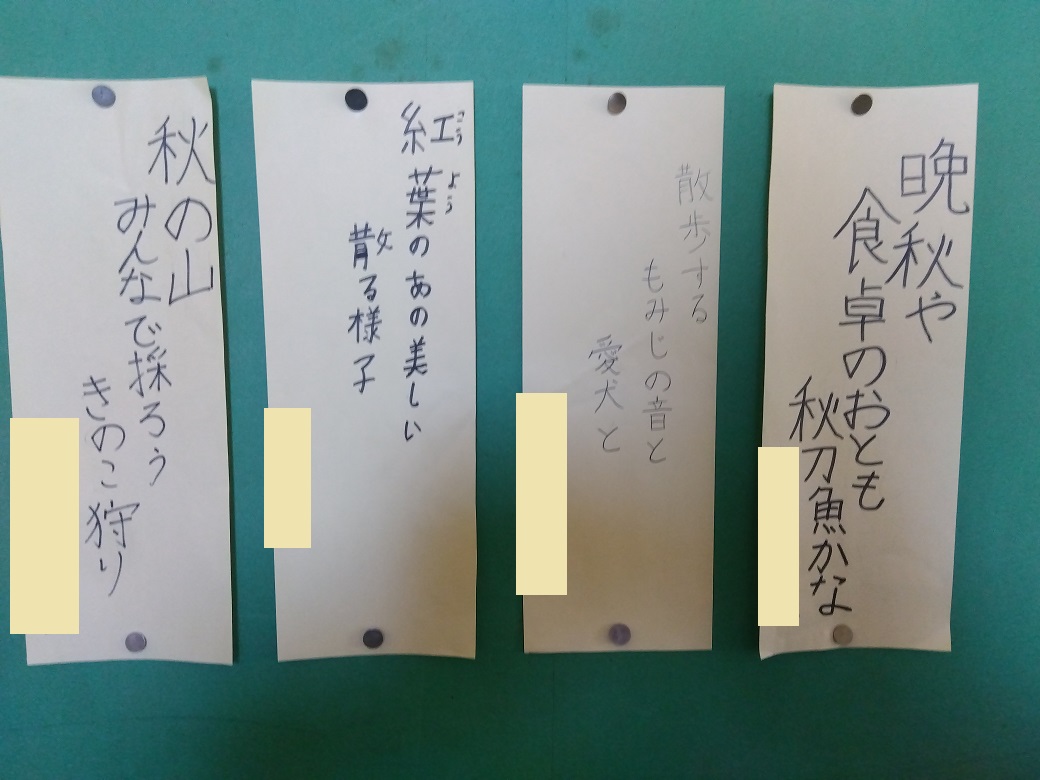 晩秋や
食卓のおとも
秋刀魚かな
散歩する
もみじの音と
愛犬と
紅葉のあの美しい
こうよう
散る様子
秋の山
みんなで採ろう
きのこ狩り